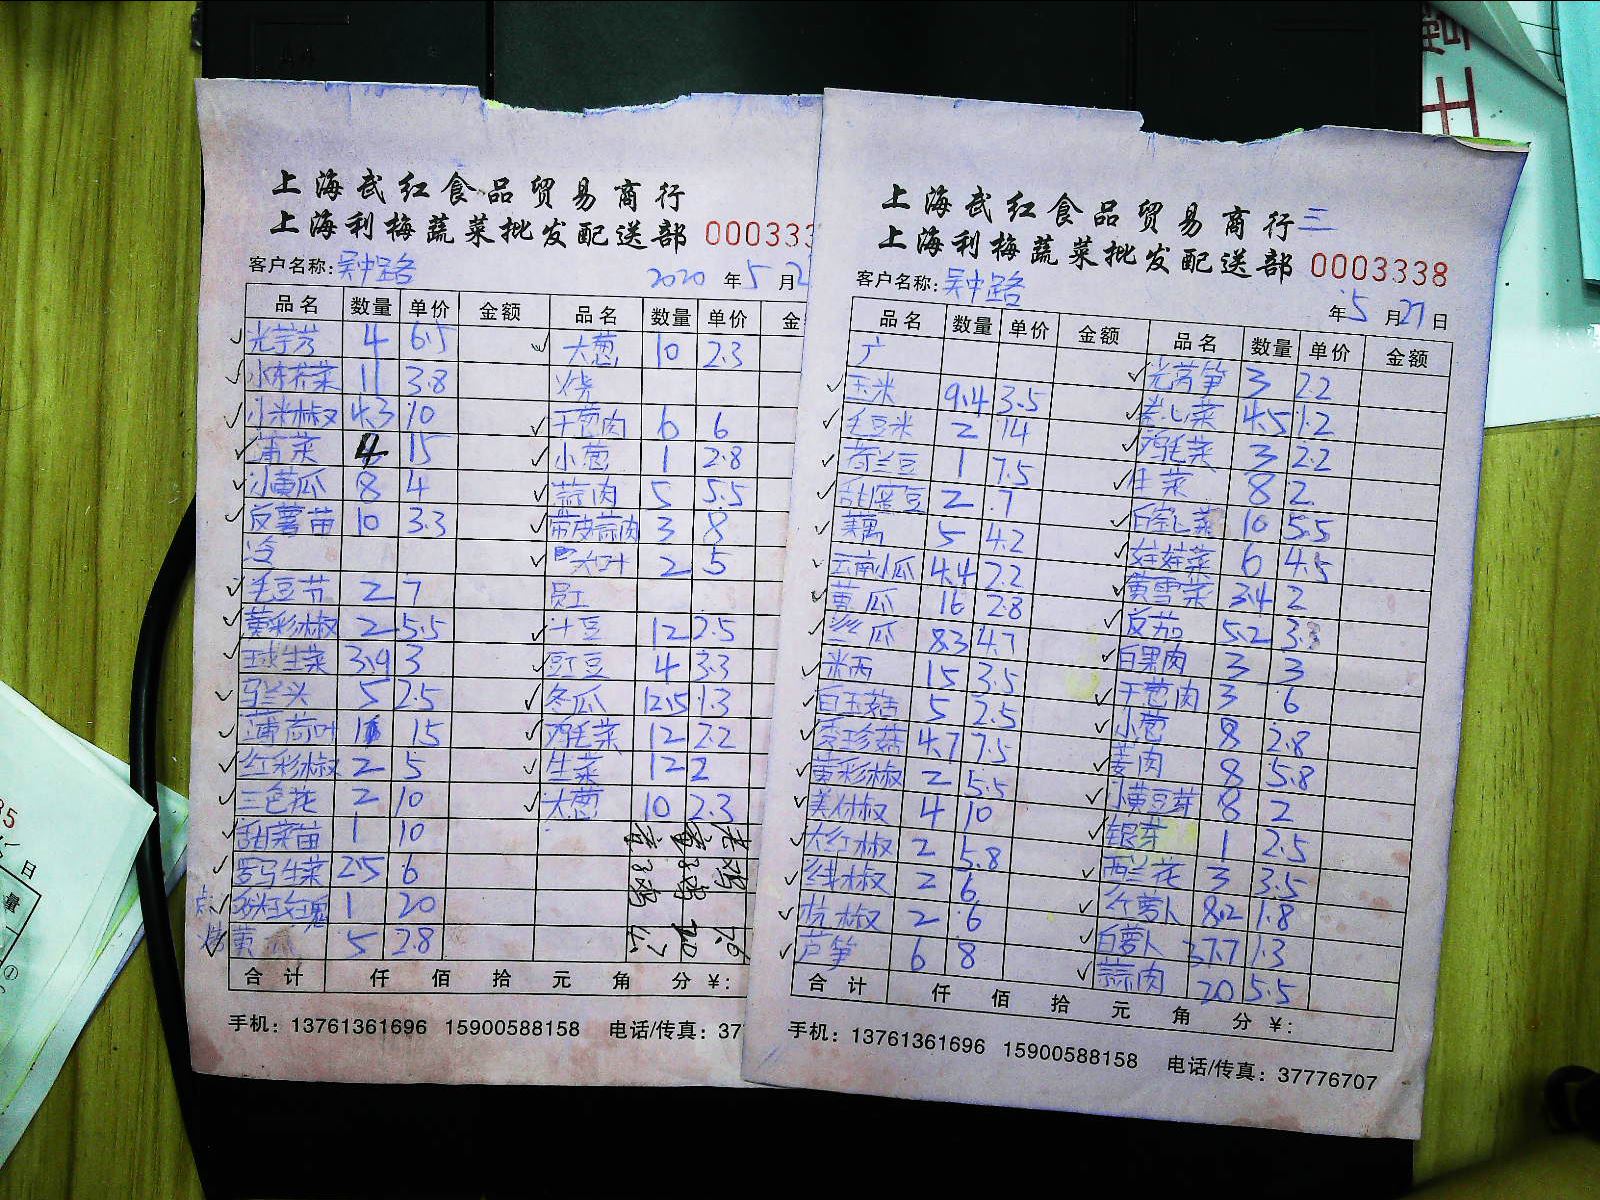 上海武红食品贸易商行
上海利梅蔬菜批发配送部 000333
客户名称:吴中路 2020 年 5 月 2
品名 数量 单价 金额 品名 数量 单价 金
光芋艿 4 6.5 大葱 10 2.3
11 3.8
小米椒 4.3 10 干葱肉 6 6
蒲菜 4 15 小葱 1 2.8
小黄瓜 8 4 蒜肉 5 5.5
反薯苗 10 3.3 带皮蒜肉 3 8
冷 2 5
毛豆节 2 7 员工
黄彩椒 2 5.5 土豆 12 2.5
球生菜 3.9 3 豇豆 4 3.3
马兰头 5 2.5 冬瓜 12.5 1.3
薄荷叶 15 鸡毛菜 12 2.2
红彩椒 2 5 生菜 12 2
三色花 2 10 大葱 10 2.3
甜菜苗 1 10
罗马生菜 2.5 6
1 20
黄瓜 5 2.8
合计 仟 佰 拾 元 角 分 ¥:
手机: 13761361696 15900588158 电话/传真: 37
上海武红食品贸易商行 三
上海利梅蔬菜批发配送部 0003338
客户名称:吴中路 年 5 月 27 日
品名 数量 单价 金额 品名 数量 单价 金额
广 光莴笋 3 2.2
玉米 9.4 3.5 卷心菜 4.5 1.2
毛豆米 2 14 鸡毛菜 3 2.2
荷兰豆 1 7.5 生菜 8 2
甜蜜豆 2 7 10 5.5
藕 5 4.2 娃娃菜 6 4.5
云南小瓜 4.4 2.2 黄雪菜 3.4 2
黄瓜 16 2.8 反茄 5.2
丝瓜 8.3 4.7 白果肉 3 3
米西 15 3.5 干葱肉 3 6
白玉菇 5 2.5 小葱 8 2.8
秀珍菇 4.7 7.5 姜肉 8 5.8
黄彩椒 2 5.5 小黄豆芽 8 2
美人椒 4 10 银芽 1 2.5
大红椒 2 5.8 西兰花 3 3.5
线椒 2 6 红萝卜 8.2 1.8
杭椒 2 6 白萝卜 37.7 1.3
芦笋 6 8 蒜肉 20 5.5
合计 仟 佰 拾 元 角 分 ¥:
手机: 13761361696 15900588158 电话/传真: 37776707